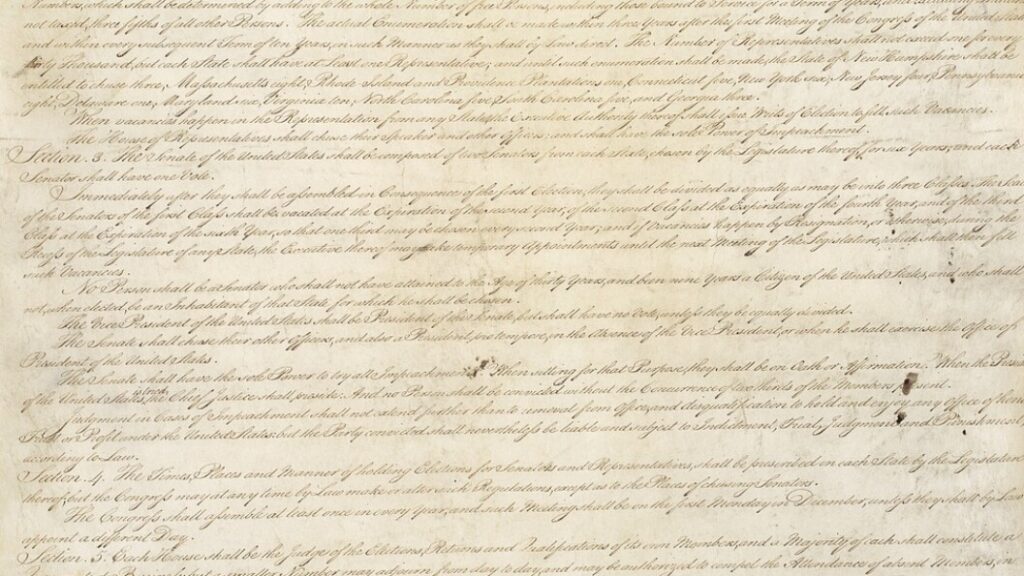 Numbers, which shall be determined by adding to the whole Number of free Persons, including those bound to Service for a Term of Years, and excluding Indians
not taxed, three fifths of all other Persons. The actual Enumeration shall be made within three Years after the first Meeting of the Congress of the United States,
and within every subsequent Term of ten Years, in such Manner as they shall by Law direct. The Number of Representatives shall not exceed one for every
thirty Thousand, but each State shall have at Least one Representative; and until such enumeration shall be made, the State of New Hampshire shall be
entitled to chuse three, Massachusetts eight, Rhode Island and Providence Plantations one, Connecticut five, New York six, New Jersey four, Pennsylvania
eight, Delaware one, Maryland six, Virginia ten, North Carolina five, South Carolina five, and Georgia three.
When vacancies happen in the Representation from any State, the Executive Authority thereof shall issue Writs of Election to fill such Vacancies.
The House of Representatives shall chuse their Speaker and other Officers; and shall have the sole Power of Impeachment.
Section. 3. The Senate of the United States shall be composed of two Senators from each State, chosen by the Legislature thereof, for six Years; and each
Senator shall have one Vote.
Immediately after they shall be assembled in Consequence of the first Election, they shall be divided as equally as may be into three Classes. The Seats
of the Senators of the first Class shall be vacated at the Expiration of the second Year, of the second Class at the Expiration of the fourth Year, and of the third
Class at the Expiration of the sixth Year, so that one third may be chosen every second Year; and if Vacancies happen by Resignation, or otherwise, during the
Recess of the Legislature of any State, the Executive thereof may make temporary Appointments until the next Meeting of the Legislature, which shall then fill
such Vacancies.
No Person shall be a Senator who shall not have attained to the Age of thirty Years, and been nine Years a Citizen of the United States, and who shall
not, when elected, be an Inhabitant of that State for which he shall be chosen.
The Vice President of the United States shall be President of the Senate, but shall have no Vote, unless they be equally divided.
The Senate shall chuse their other Officers, and also a President pro tempore, in the Absence of the Vice President, or when he shall exercise the Office of
President of the United States.
The Senate shall have the sole Power to try all Impeachments. When sitting for that Purpose, they shall be on Oath or Affirmation. When the President
of the United States is tried, the Chief Justice shall preside: And no Person shall be convicted without the Concurrence of two thirds of the Members present.
Judgment in Cases of Impeachment shall not extend further than to removal from Office, and disqualification to hold and enjoy any Office of honor,
Trust or Profit under the United States: but the Party convicted shall nevertheless be liable and subject to Indictment, Trial, Judgment and Punishment,
according to Law.
Section. 4. The Times, Places and Manner of holding Elections for Senators and Representatives, shall be prescribed in each State by the Legislature
thereof; but the Congress may at any time by Law make or alter such Regulations, except as to the Places of chusing Senators.
The Congress shall assemble at least once in every Year, and such Meeting shall be on the first Monday in December, unless they shall by Law
appoint a different Day.
Section. 5. Each House shall be the Judge of the Elections, Returns and Qualifications of its own Members, and a Majority of each shall constitute a
smaller Number may adjourn from day to day, and may be authorized to compel the Attendance of absent Members, in